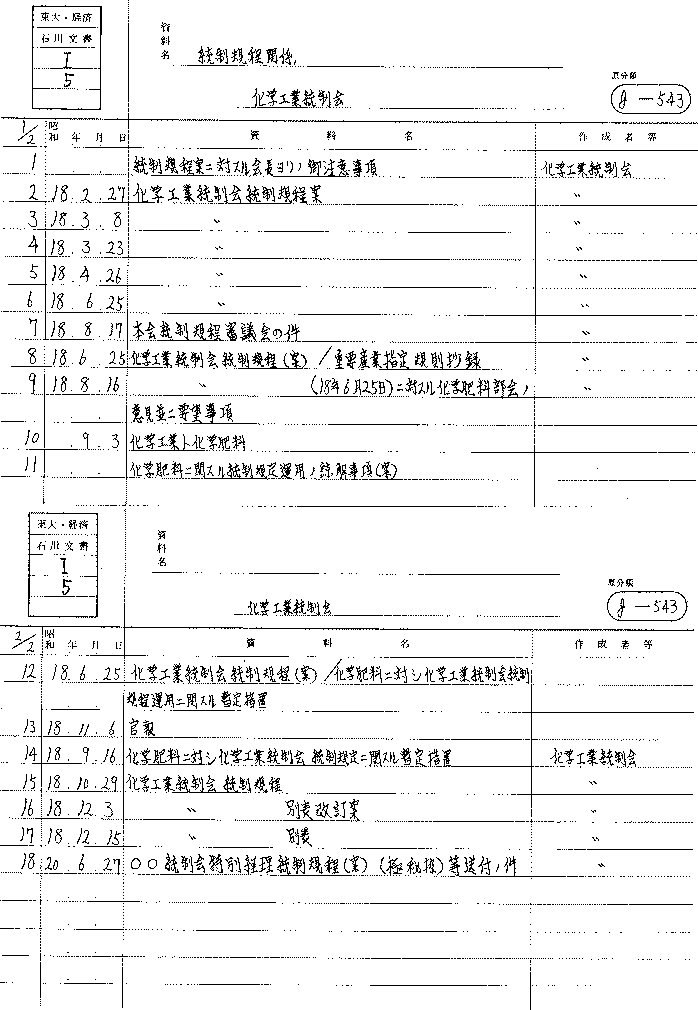 東大・経済
石川文書
I
5
資料名
統制規程関係
化学工業統制会
原分類
J－543
1/2 昭和 年 月 日 資料名 作成者等
1 統制規程案ニ対スル会長ヨリノ御注意事項 化学工業統制会
2 18.2.27 化学工業統制会統制規程案 〃
3 18.3.8 〃 〃
4 18.3.23 〃 〃
5 18.4.26 〃 〃
6 18.6.25 〃 〃
7 18.8.17 本会統制規程審議会の件 〃
8 18.6.25 化学工業統制会統制規程(案)／重要産業指定規則抄録 〃
9 18.8.16 〃 (18年6月25日)ニ対スル化学肥料部会ノ 〃
意見並ニ要望事項
10 .9.3 化学工業ト化学肥料
11 化学肥料ニ関スル統制規定運用ノ諒解事項(案)
東大・経済
石川文書
I
5
資料名
化学工業統制会
原分類
J－543
2/2 昭和 年 月 日 資料名 作成者等
12 18.6.25 化学工業統制会統制規程(案)／化学肥料ニ対シ化学工業統制会統制
規程運用ニ関スル暫定措置
13 18.11.6 官報
14 18.9.16 化学肥料ニ対シ化学工業統制会統制規定ニ関スル暫定措置 化学工業統制会
15 18.10.29 化学工業統制会統制規程 〃
16 18.12.3 〃 別表改訂案 〃
17 18.12.15 〃 別表 〃
18 20.6.27 〇〇統制会特別経理統制規程(案)(極秘扱)等送付ノ件 〃